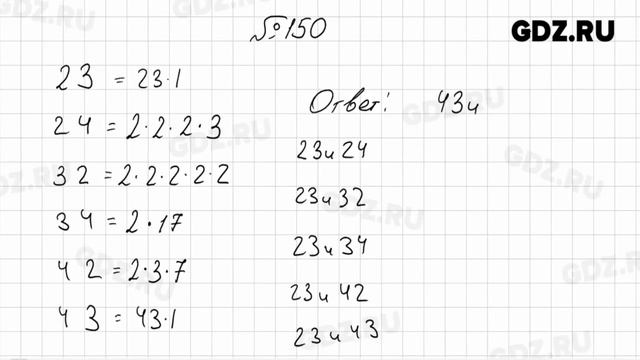 №150
GDZ.RU
23 = 23·1
24 = 2·2·2·3
32 = 2·2·2·2·2
34 = 2·17
42 = 2·3·7
43 = 43·1
Ответ: 43и
23и24
23и32
23и34
23и42
23и43